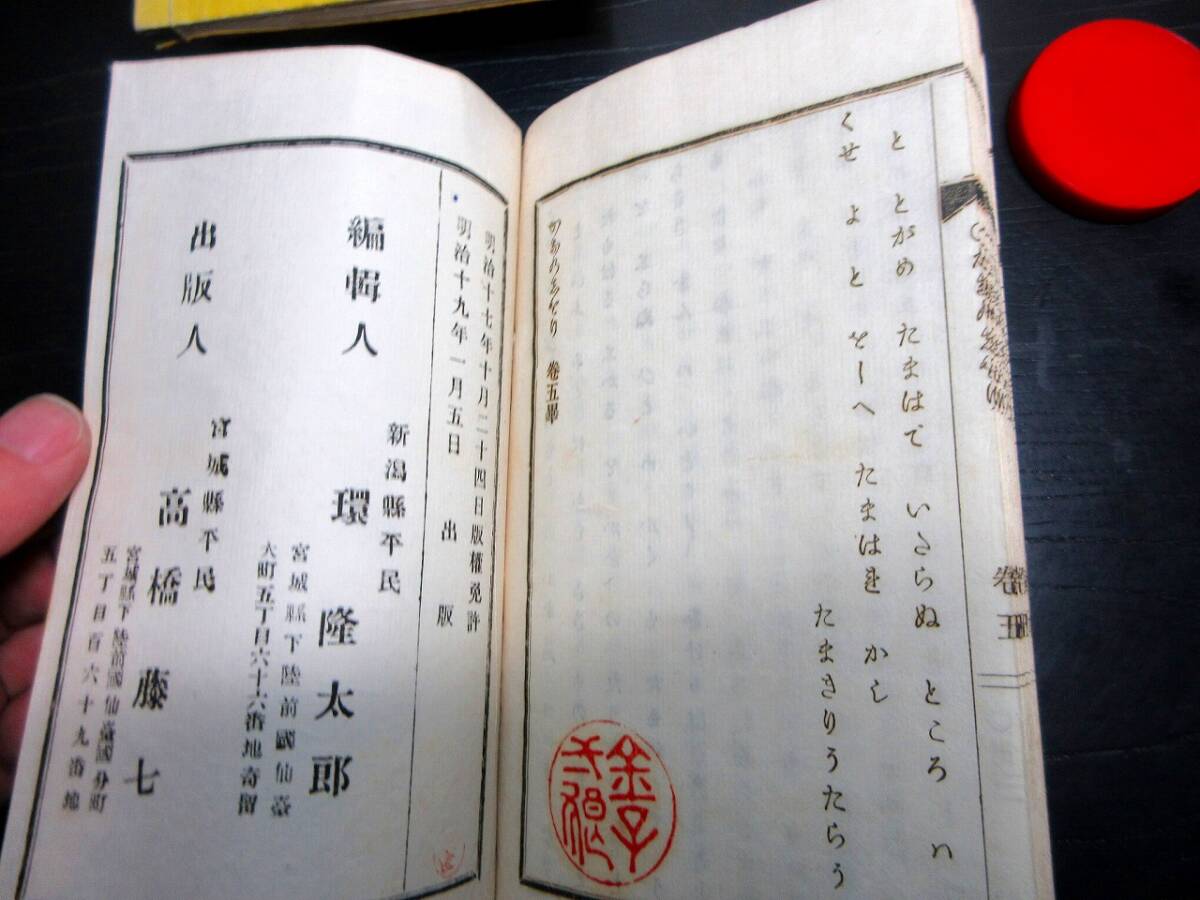 と とがめ たまはで いさらぬ ところ ハ
くせ よ と をしへ たまはを かし
たまきりうたらう
巻五畢
巻五
明治十七年十月二十四日版權免許
明治十九年一月五日 出版
編輯人
新潟縣平民
環 隆太郎
宮城縣下陸前國仙臺
大町五丁目六十六番地寄留
出版人
宮城縣平民
高橋藤七
宮城縣下陸前國仙臺國分町
五丁目百六十九番地